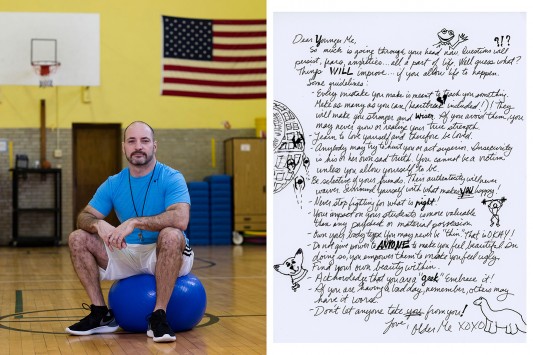 Dear Younger Me,
?!?
So much is going through your head now. Questions will
persist, fears, anxieties... all a part of life. Well guess what?
Things WILL improve... if you allow life to happen.
Some guidelines:
- Every mistake you make is meant to teach you something.
Make as many as you can (heartbreak included!)! They
will make you stronger and wiser. If you avoid them, you
may never grow or realize your true strength.
- Learn to love yourself and therefore be loved.
- Anybody may try to hurt you or act superior. Insecurity
is his or her own sad truth. You cannot be a victim
unless you allow yourself to be.
- Be selective of your friends. Their authenticity will never
waver. Surround yourself with what makes YOU happy!
- Never stop fighting for what is right!
- Your impact on your students is more valuable
than any paycheck or material possession.
- Own your body type. You may never be "thin." That is OKAY!
- Do not give power to ANYONE to make you feel beautiful. In
doing so, you empower them to make you feel ugly.
Find your own beauty within.
- Acknowledge that you are a "geek". Embrace it!
- If you are having a bad day, remember, others may
have it worse.
- Don't let anyone take you from you!
Love,
Older Me XOXO